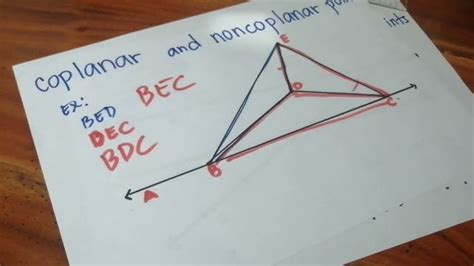 coplanar and noncoplanar
ints
Ex:
BED
BEC
DEC
BDC
E
D
C
B
A